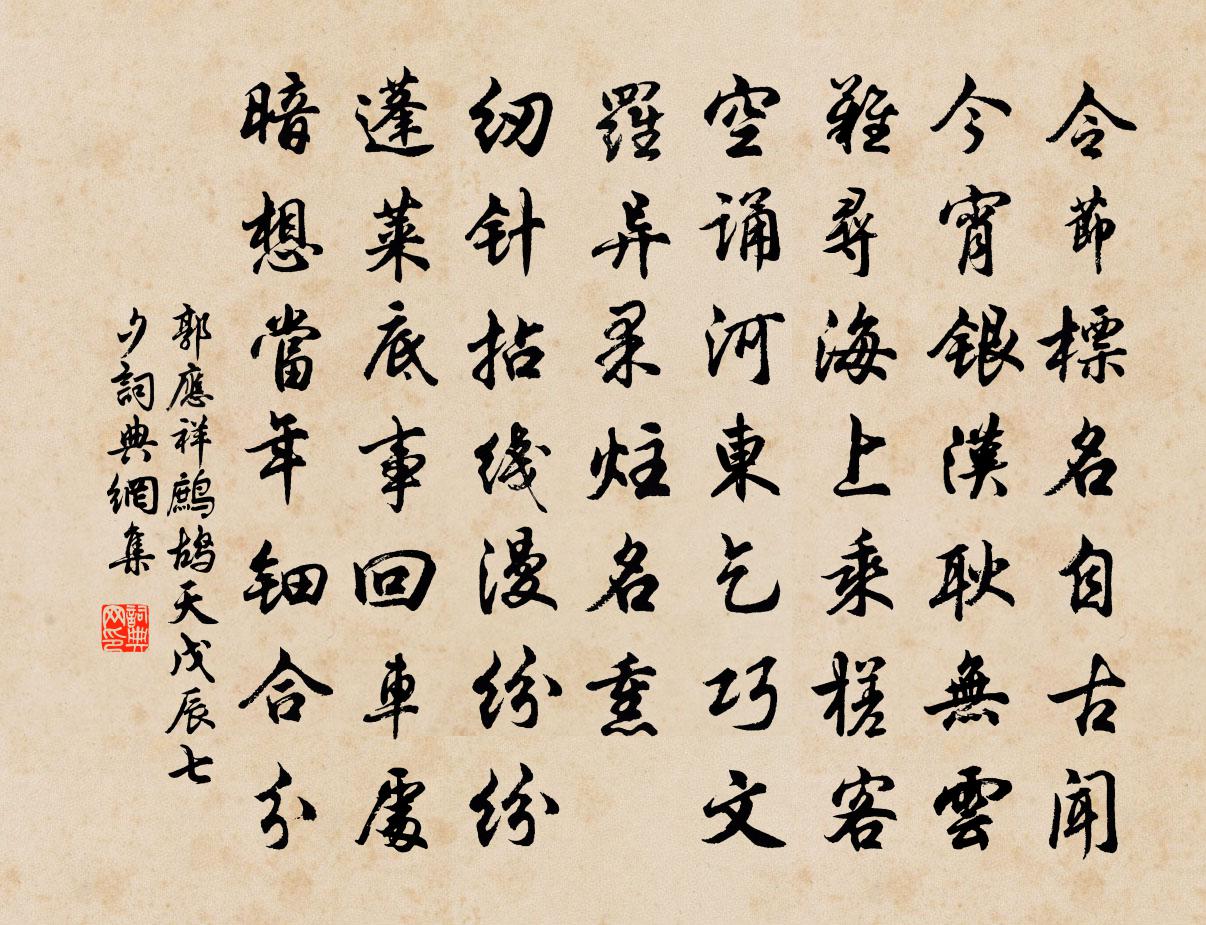 令節標名自古聞
今宵銀漢耿無雲
難尋海上乘槎客
空誦河東乞巧文
羅异果炷名熏
紉针拈线漫紛紛
蓬萊底事回車處
暗想當年钿合分
郭應祥鷓鴣天戊辰七
夕詞典網集
詞典
网印